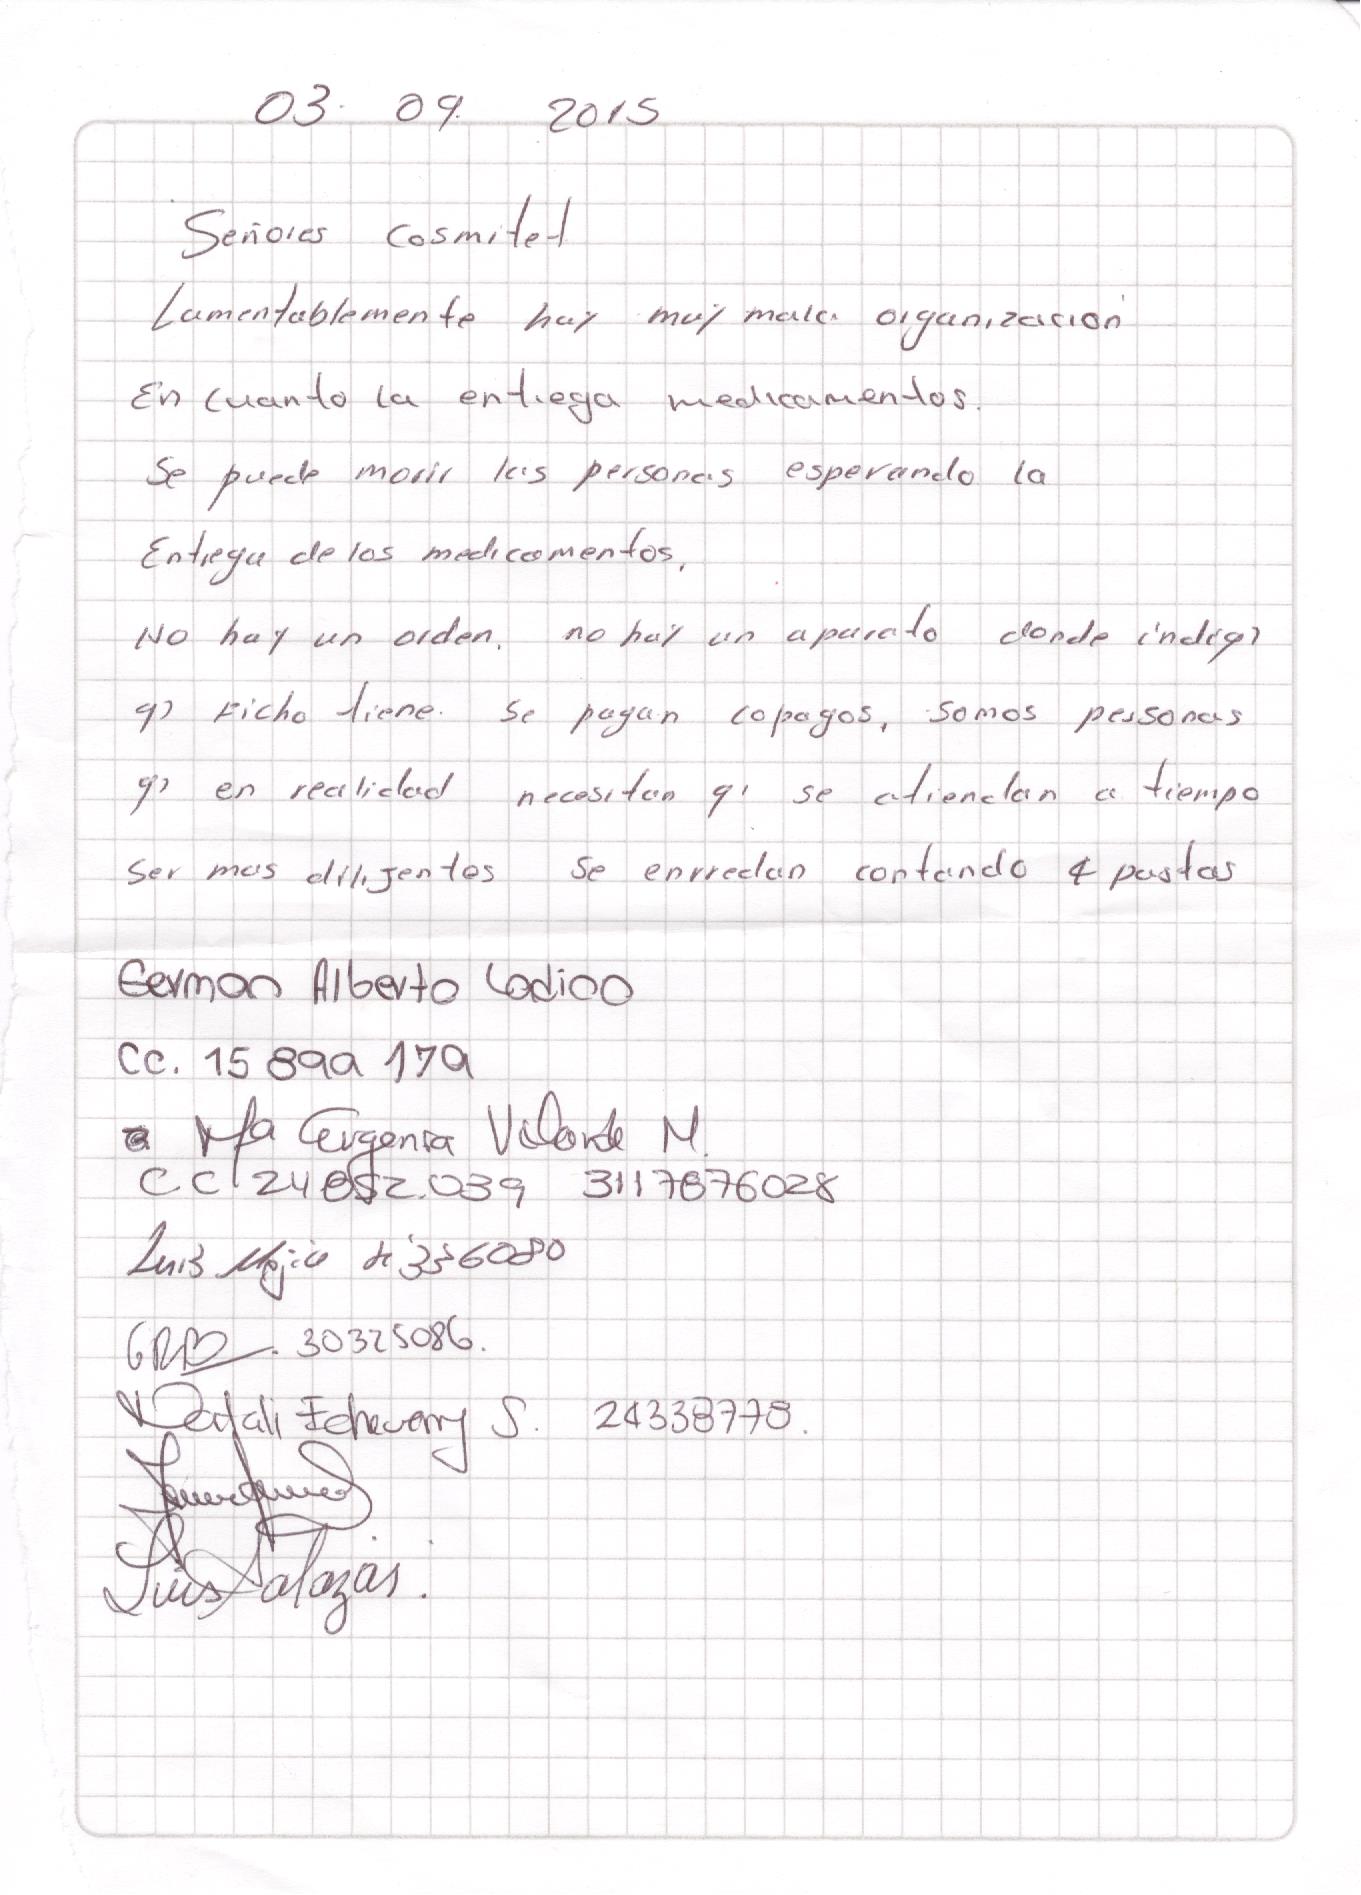 03. 09. 2015
Señores Cosmitet
Lamentablemente hay muy mala organización
En cuanto la entrega medicamentos.
Se puede morir las personas esperando la
Entrega de los medicamentos,
No hay un orden. no hay un aparato donde indiq'
q' Ficho tiene. Se pagan copagos, somos personas
q' en realidad necesitan q' se atiendan a tiempo
Ser mas diligentes Se enrredan contando 4 pastas
German Alberto
CC. 15 899 179
Mª Eugenia M.
CC 24852.039 3117876028
Luis 336080
30325086.
Natali Echeverry S. 24338778.
Luis Salazar.